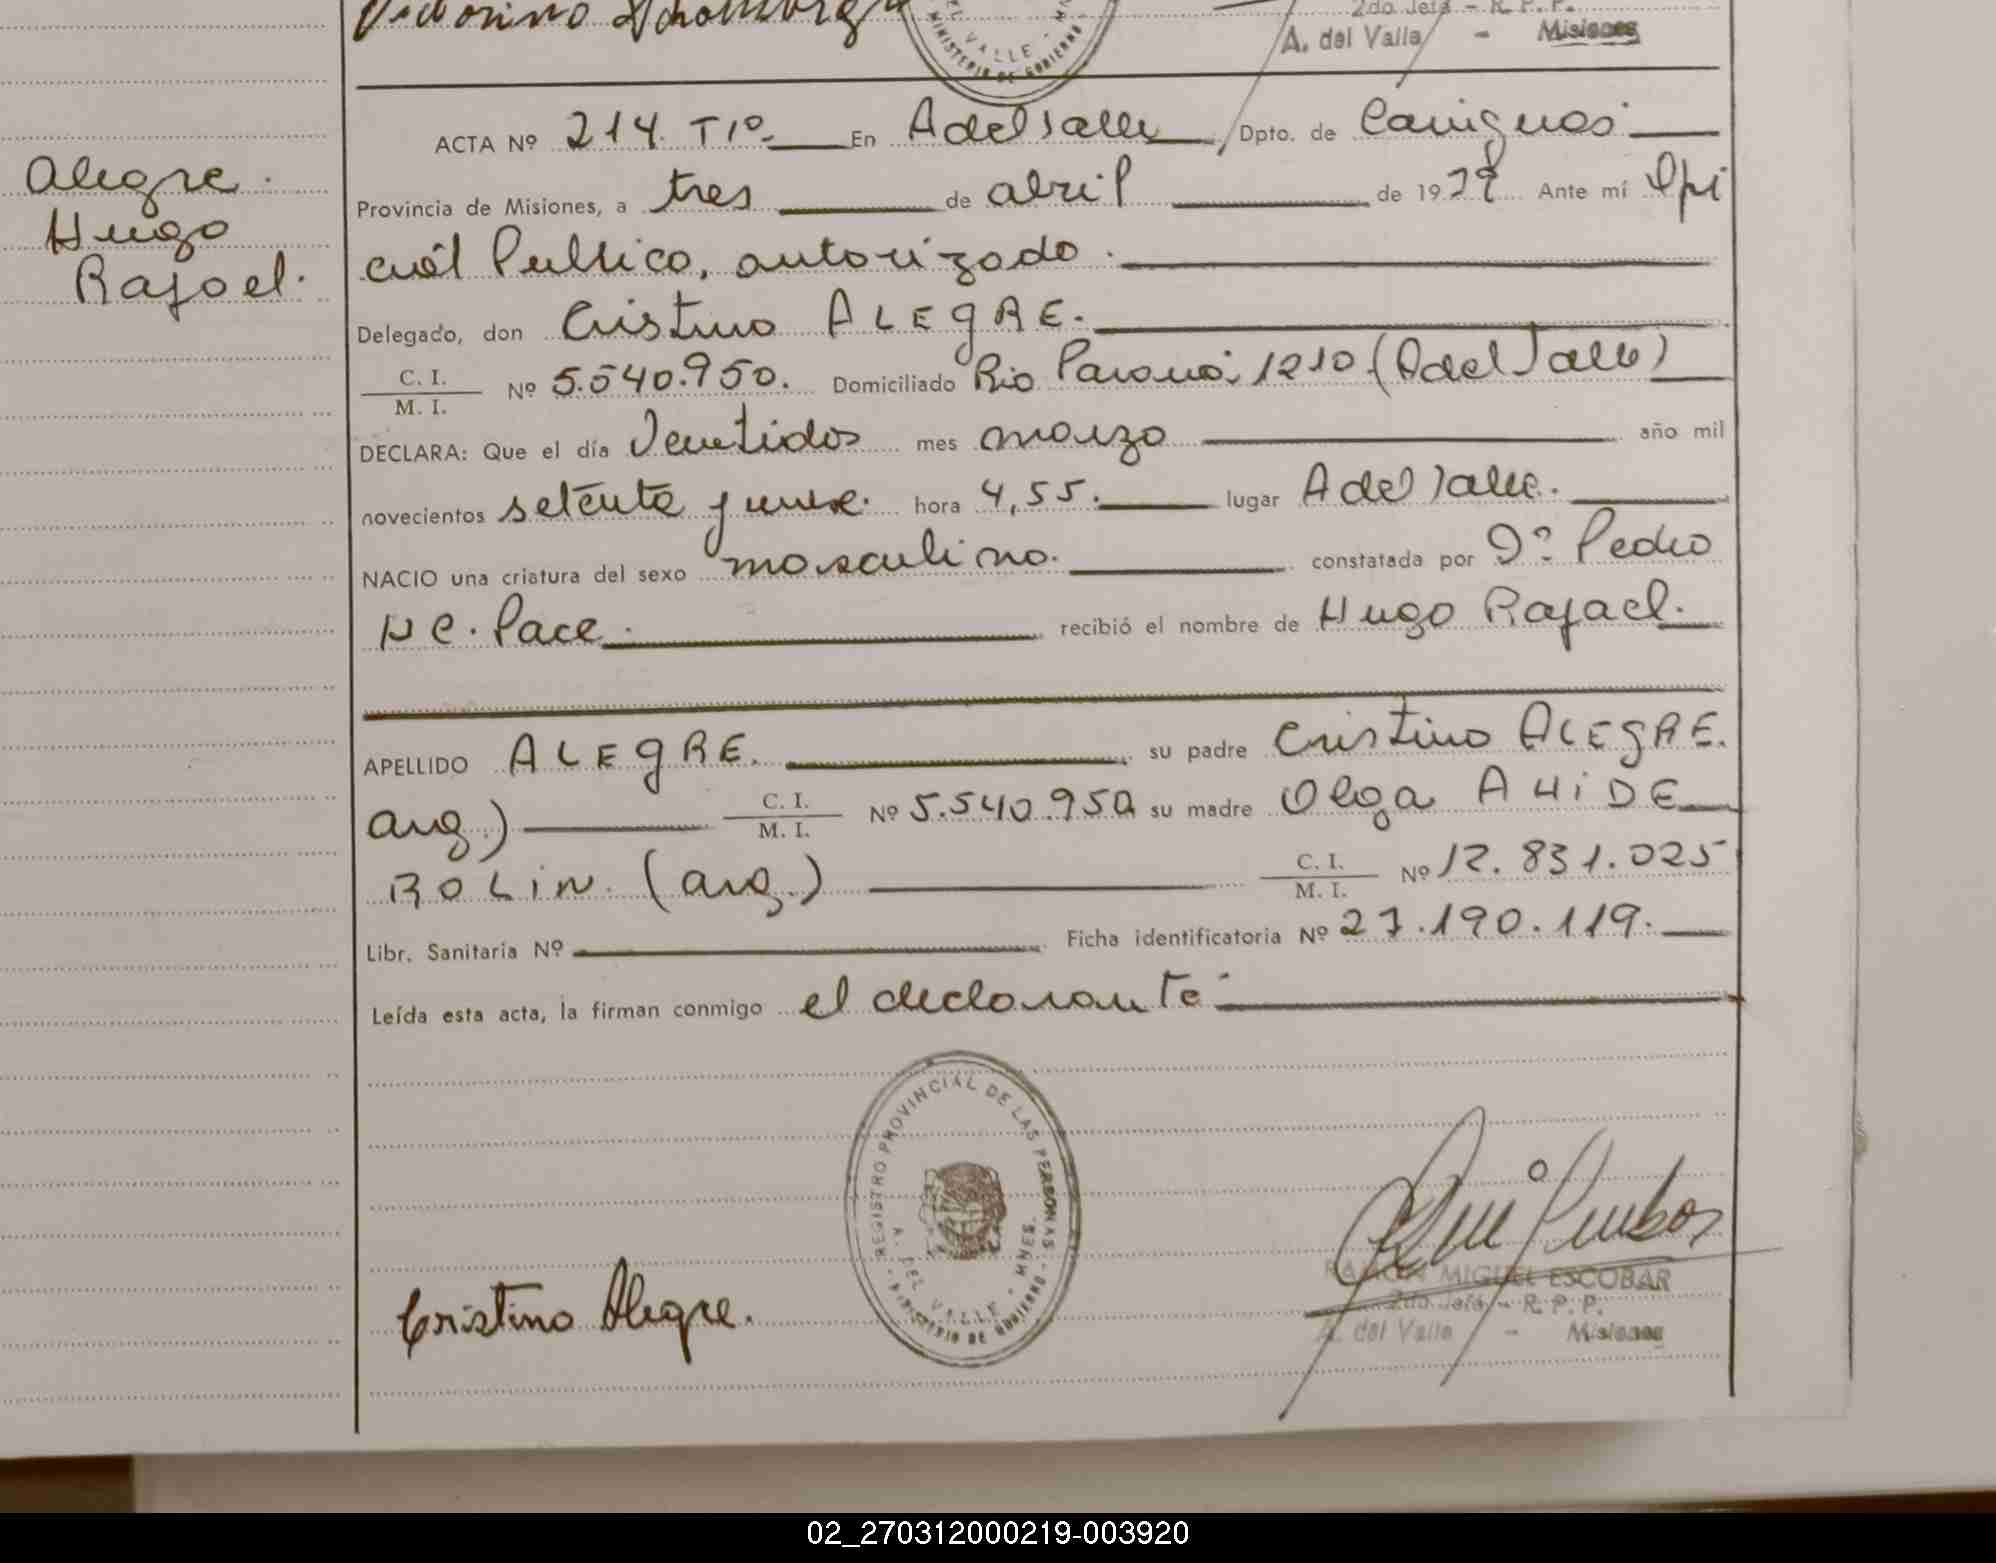 2do Jefe - R. P. P.
A. del Valle - Misiones
DEL VALLE
MINISTERIO DE GOBIERNO
ACTA Nº 214. T1º. En A del Valle Dpto. de Cainguas
Alegre.
Hugo
Rafael.
Provincia de Misiones, a tres de abril de 1979 Ante mí Ofi
cial Publico, autorizado.
Delegado, don Cristino ALEGRE.
C. I.
M. I. Nº 5.540.950. Domiciliado Rio Paraná 1210 (A del Valle)
DECLARA: Que el día Veintidos mes marzo año mil
novecientos setenta y nueve. hora 4,55. lugar A del Valle.
NACIO una criatura del sexo masculino. constatada por Dº Pedro
H C. Pace. recibió el nombre de Hugo Rafael.
APELLIDO ALEGRE. su padre Cristino ALEGRE.
arg.) C. I.
M. I. Nº 5.540.950 su madre Olga AHiDE
ROLiN. (arg.) C. I.
M. I. Nº 12.831.025
Libr. Sanitaria Nº Ficha identificatoria Nº 27.190.119.
Leída esta acta, la firman conmigo el declarante
REGISTRO PROVINCIAL DE LAS PERSONAS
A. DEL VALLE - MNES.
MINISTERIO DE GOBIERNO
Cristino Alegre.
RAMON MIGUEL ESCOBAR
2do Jefe - R. P. P.
A. del Valle - Misiones
02_270312000219-003920